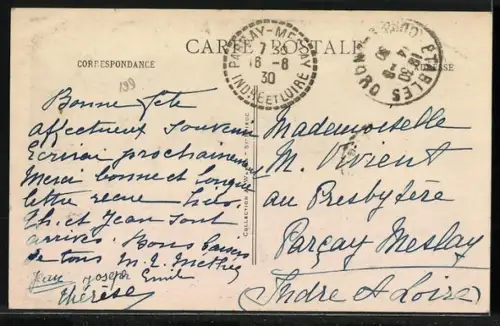 CARTE POSTALE
CORRESPONDANCE
ADRESSE
PARÇAY-MESLAY
7 30
16-8
30
INDRE ET LOIRE
ETABLES
30
199
Bonne fête
affectueux souvenir
Ecrirai prochainement
Merci bonne et longue
lettre reçue hier
Th. et Jean sont
arrivés. Bons baisers
de tous
Jean Joseph Emile
Thérèse
Mademoiselle
M. Vivient
au Presbytère
Parçay Meslay
Indre et Loire